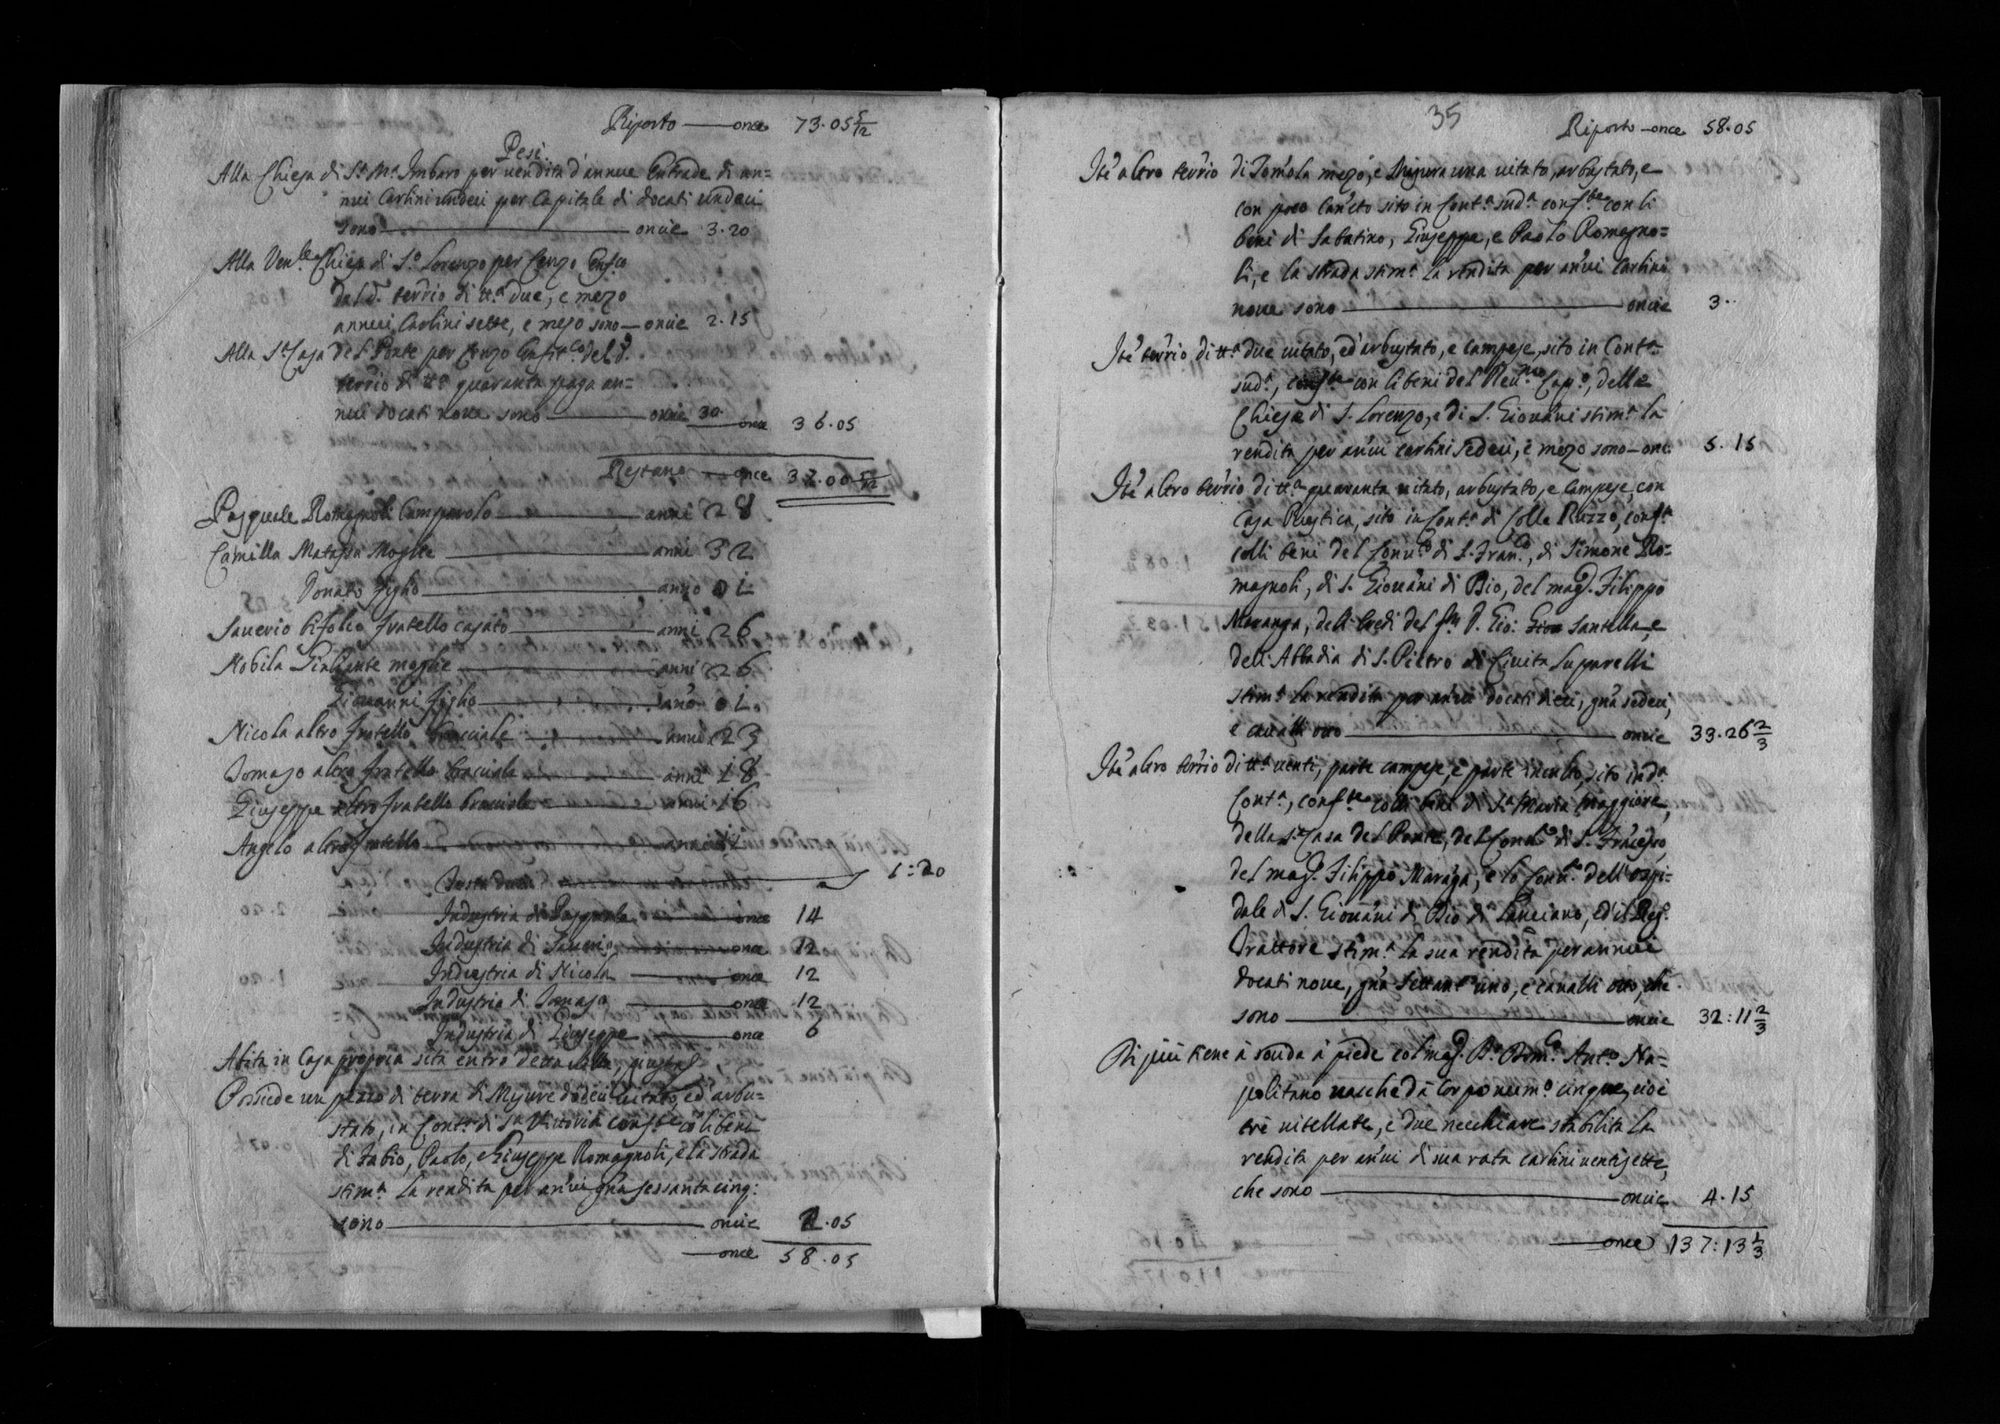 Riporto — once 73.05 5/12
Pesi
Alla Chiesa di S.ª M.ª Imbaro per vendita d'annue Entrade di an=
nui Carlini undeci per Capitale di docati undeci
sono — oncie 3.20
Alla Ven.le Chiesa di S.º Lorenzo per Cenzo
dal d.º terr̃io di tt.ª due, e mezo
annui Carlini sette, e mezo sono — oncie 2.15
Alla S.ª Casa del Ponte per Cenzo del d.º
terr̃io di tt.ª quaranta paga an=
nui docati nove sono — oncie 30. once 36.05
Restano — once 37.00 5/12
Pasquale Romagnoli Camparolo — anni 28
Camilla Matassa Moglie — anni 32
Donato figlio — anno 01
Saverio bifolco fratello casato — anni 26
Nobila moglie — anni 26
Giovanni figlio — año 01.
Nicola altro fratello bracciale — anni 23
Tomaso altro fratello bracciale — anni 18
Giuseppe altro fratello bracciale — anni 16
Angelo altro fratello — anni
Testa ducati — 1:20
Industria di Pasquale — once 14
Industria di Saverio — once 12
Industria di Nicola — once 12
Industria di Tomaso — once 12
Industria di Giuseppe — once 6
Abita in Casa propria sita entro detta Villa,
Possiede un pezzo di terra di Misure dodeci vitato, ed arbu=
stato, in Cont.ª di S.ª Vittoria conf.te cõ li beni
di Fabio, Paolo, e Giuseppe Romagnoli, e la strada
stim.ª la rendita per añui gña sessantacinq:
sono — oncie 2.05
— once 58.05
35
Riporto — once 58.05
Itẽ altro terr̃io di Tom̃ola mezo, e Misura una vitato, arbustato, e
con poco Cañeto sito in Cont.ª sud.ª conf.te con li
beni di Sabatino, Giuseppe, e Paolo Romagno=
li, e la strada stim.ª la rendita per añui Carlini
nove sono — oncie 3..
Itẽ terr̃io di tt.ª due vitato, ed arbustato, e campese, sito in Cont.ª
sud.ª, conf.te con li beni del Rev.mo Cap.º, delle
Chiese di S. Lorenzo, e di S. Giovãni stim.ª la
rendita per añui carlini sedeci, e mezo sono — onc. 5.15
Itẽ altro terr̃io di tt.ª quaranta vitato, arbustato, e campese, con
Casa Rustica, sito in Cont.ª di Colle Ruzzo, conf.te
colli beni del Conv.to di S. Fran.co, di Simone Ro=
magnoli, di S. Giovãni di Dio, del mag.º Filippo
Maranga, dell'Eredi del D. Gio: Santella, e
dell'Abbadia di S. Pietro di Civita Luparelli
stim.ª la rendita per añui docati dieci, gña sedeci,
e cavalli otto — oncie 33.26 2/3
Itẽ altro terr̃io di tt.ª venti, parte campese, e parte inculto, sito in d.ª
Cont.ª, conf.te colli beni di S.ª Maria Maggiore,
della S.ª Casa del Ponte, del Conv.to di S. Frãcesco,
del mag.º Filippo Marãga, e lo Conv.to dell'ospi=
dale di S. Giovãni di Dio di Lanciano, ed il Reg.º
Trattore stim.ª la sua rendita per annui
docati nove, gña settant'uno, e cavalli otto, che
sono — oncie 32:11 2/3
Di più tiene à soccida à piede col mag.º D.r Dom.co Ant.º Na=
politano vacche da Corpo num.º cinque, cioè
trè vitellate, e due necchiare, stabilita la
rendita per añui di sua rata carlini ventisette,
che sono — oncie 4.15
— once 137:13 1/3